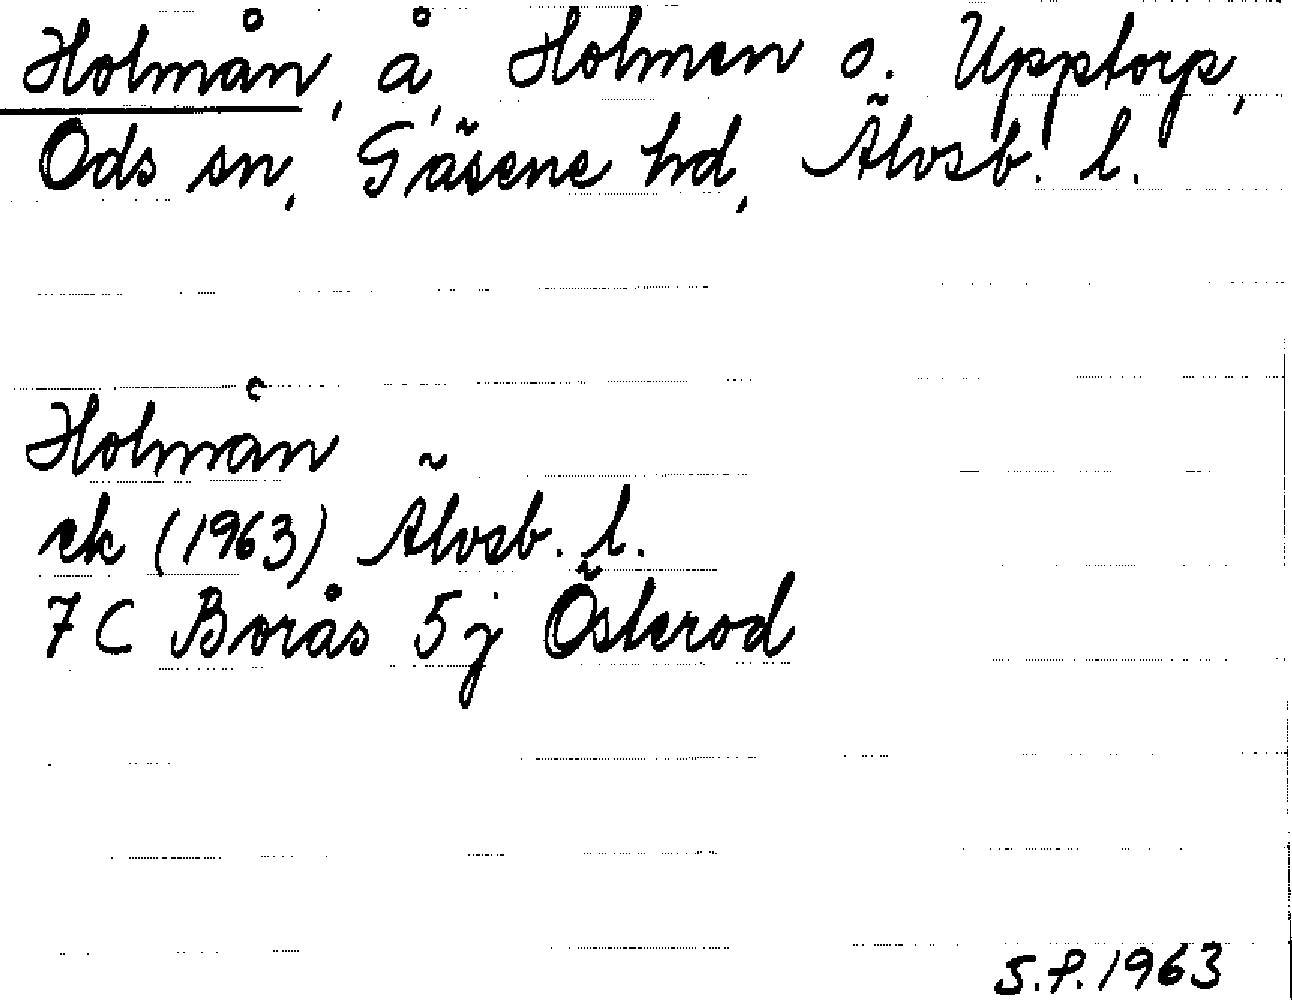 Holmån, å, Holmen o. Upptorp,
Ods sn, Gäsene hd, Älvsb. l.
Holmån
ek (1963) Älvsb. l.
7 C Borås 5 j Österod
S.P. 1963